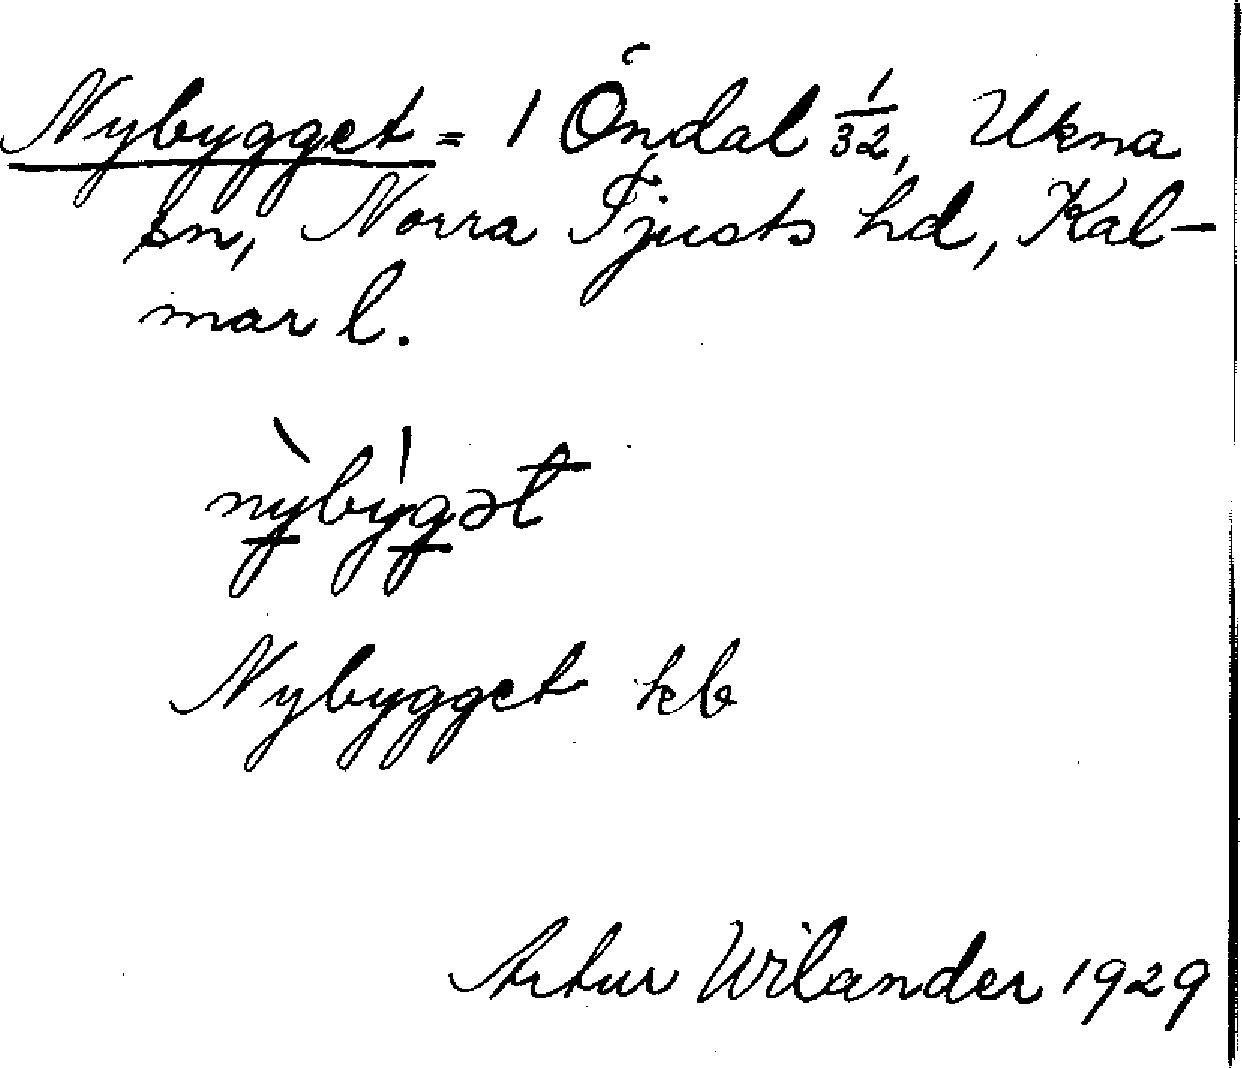 Nybygget = 1 Öndal 1/32, Ukna
sn, Norra Tjusts hd, Kal-
mar l.
nỳbýgət
Nybygget kb
Artur Wilander 1929